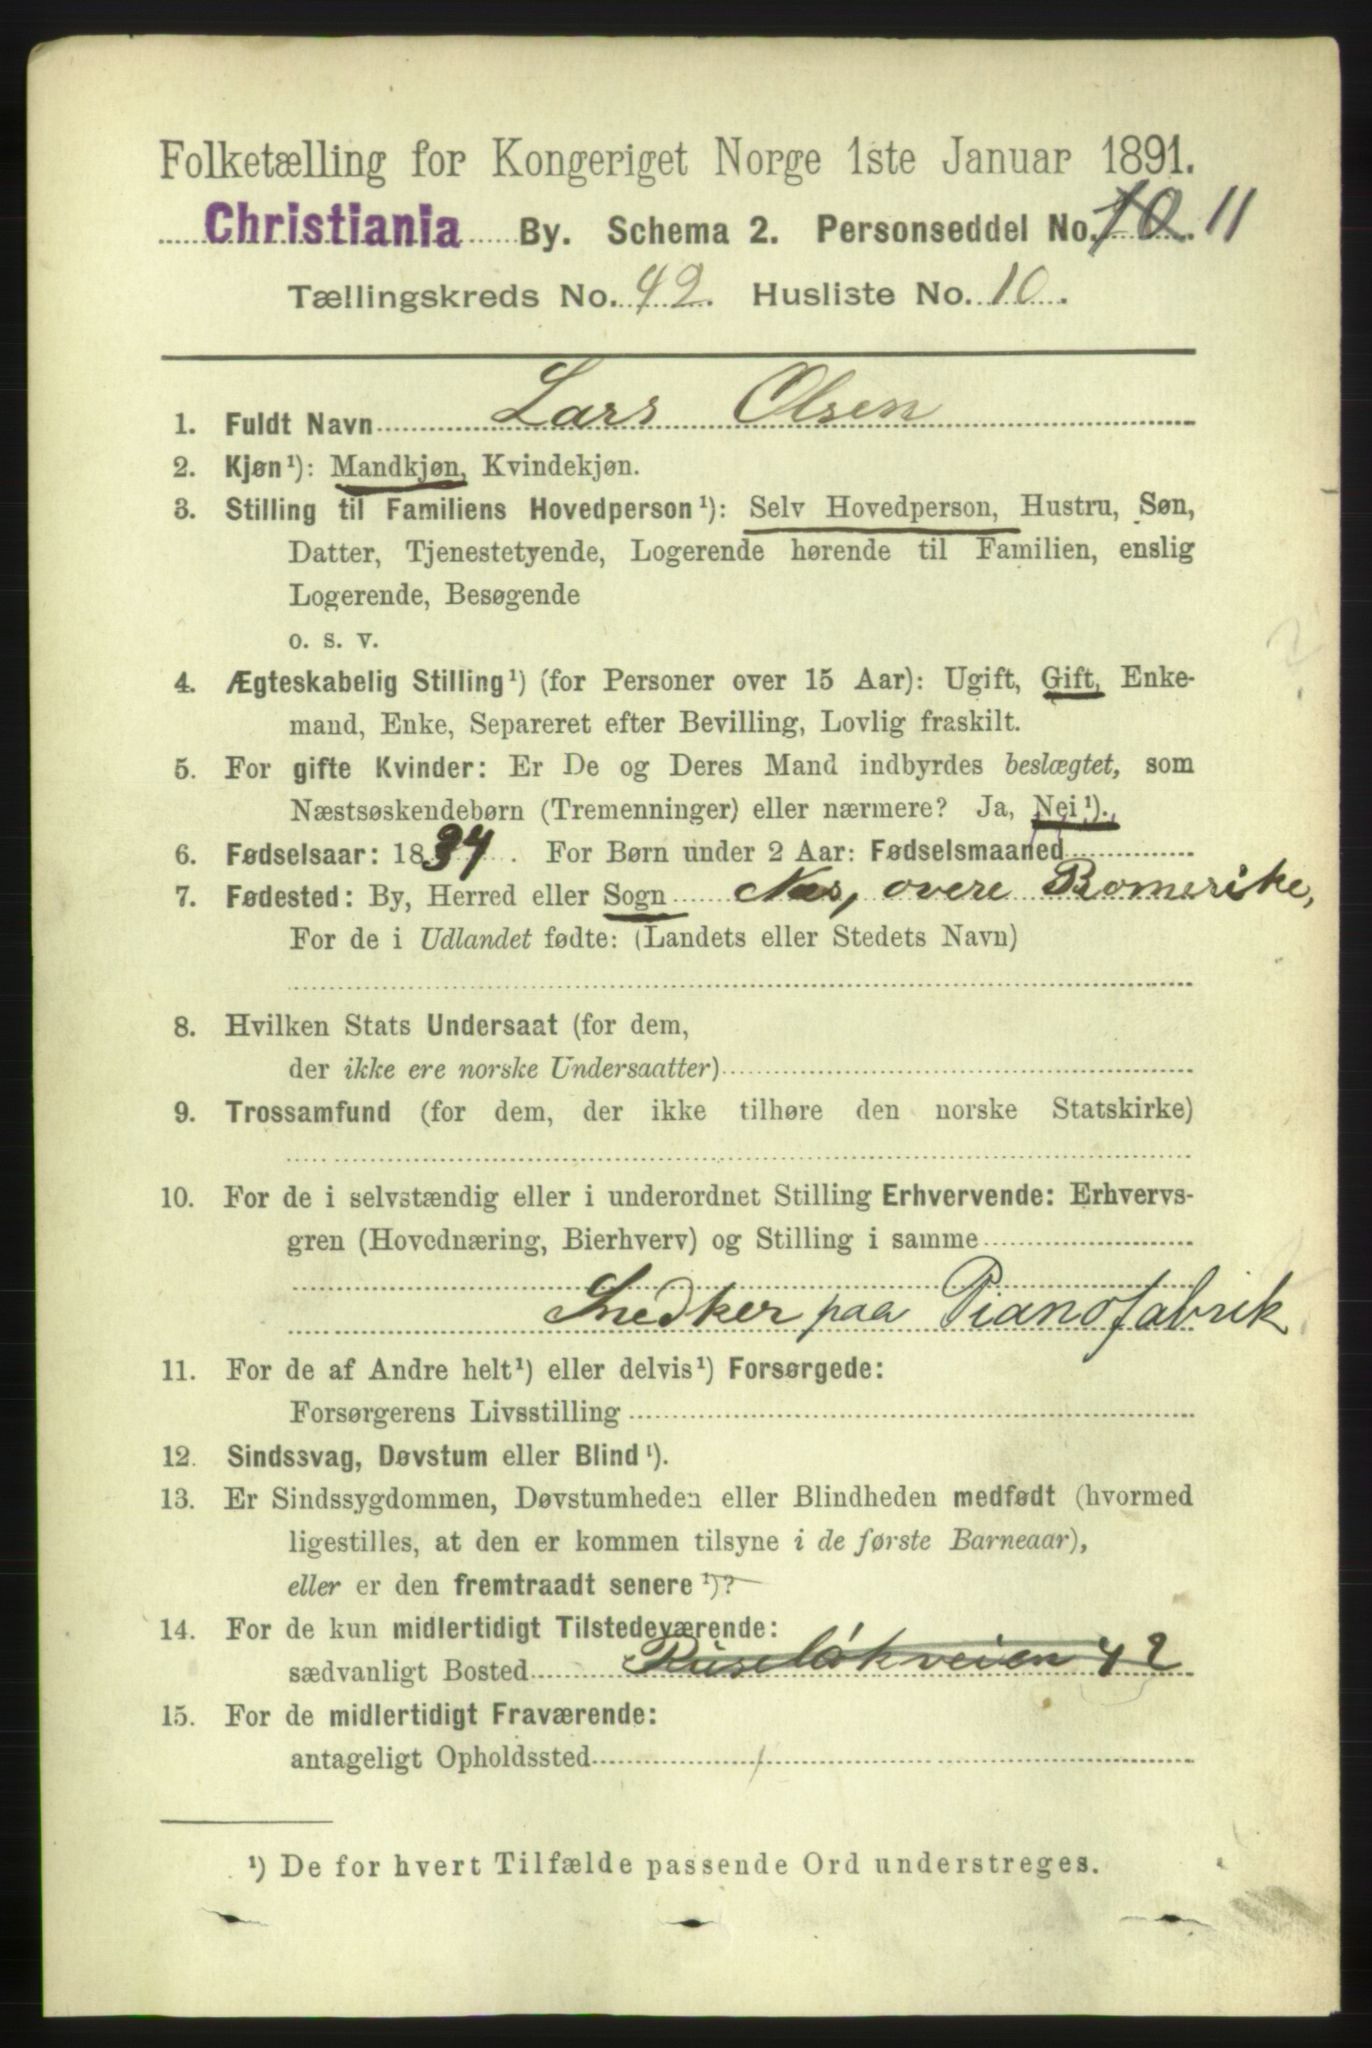 Folketælling for Kongeriget Norge 1ste Januar 1891.
Christiania By. Schema 2. Personseddel No. 10 11
Tællingskreds No. 42. Husliste No. 10.
1. Fuldt Navn Lars Olsen
2. Kjøn¹): Mandkjøn, Kvindekjøn.
3. Stilling til Familiens Hovedperson¹): Selv Hovedperson, Hustru, Søn,
Datter, Tjenestetyende, Logerende hørende til Familien, enslig
Logerende, Besøgende
o. s. v.
4. Ægteskabelig Stilling¹) (for Personer over 15 Aar): Ugift, Gift, Enke-
mand, Enke, Separeret efter Bevilling, Lovlig fraskilt.
5. For gifte Kvinder: Er De og Deres Mand indbyrdes beslægtet, som
Næstsøskendebørn (Tremenninger) eller nærmere? Ja, Nei¹).
6. Fødselsaar: 1834. For Børn under 2 Aar: Fødselsmaaned
7. Fødested: By, Herred eller Sogn Nes, overe Romerike,
For de i Udlandet fødte: (Landets eller Stedets Navn)
8. Hvilken Stats Undersaat (for dem,
der ikke ere norske Undersaatter)
9. Trossamfund (for dem, der ikke tilhøre den norske Statskirke)
10. For de i selvstændig eller i underordnet Stilling Erhvervende: Erhvervs-
gren (Hovednæring, Bierhverv) og Stilling i samme
Snedker paa Pianofabrik
11. For de af Andre helt¹) eller delvis¹) Forsørgede:
Forsørgerens Livsstilling
12. Sindssvag, Døvstum eller Blind¹).
13. Er Sindssygdommen, Døvstumheden eller Blindheden medfødt (hvormed
ligestilles, at den er kommen tilsyne i de første Barneaar),
eller er den fremtraadt senere¹)?
14. For de kun midlertidigt Tilstedeværende:
sædvanligt Bosted Ruseløkveien 42
15. For de midlertidigt Fraværende:
antageligt Opholdssted
¹) De for hvert Tilfælde passende Ord understreges.